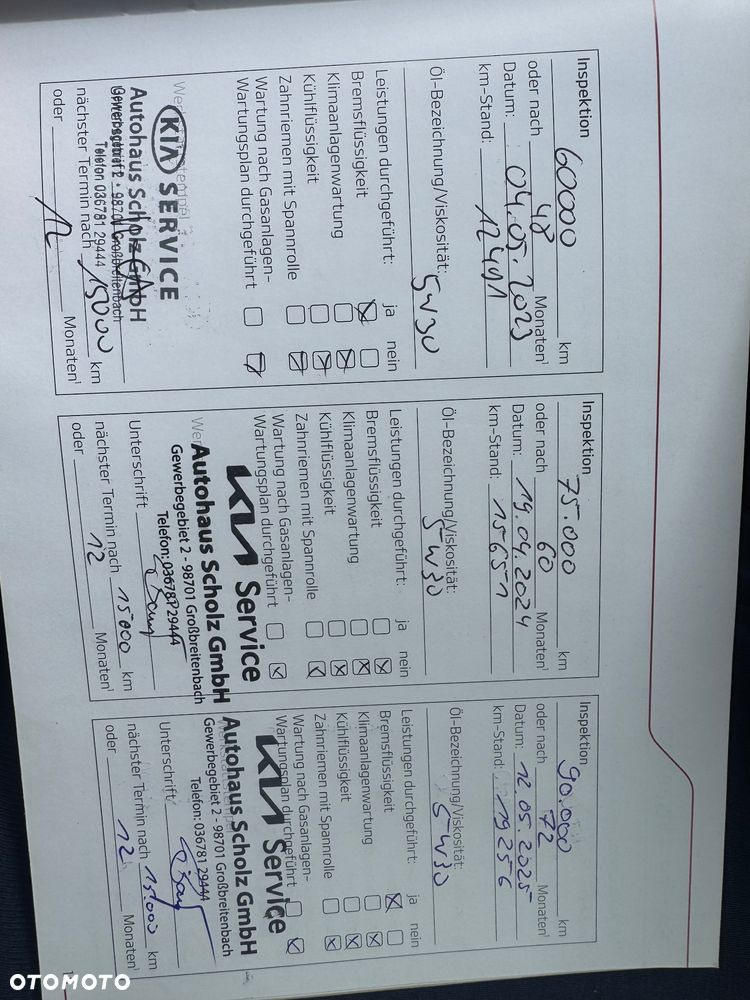 Inspektion 60000 km
oder nach 48 Monaten¹
Datum: 04.05.2023
km-Stand: 12491
Öl-Bezeichnung/Viskosität:
5W30
Leistungen durchgeführt: ja nein
Bremsflüssigkeit
Klimaanlagenwartung
Kühlflüssigkeit
Zahnriemen mit Spannrolle
Wartung nach Gasanlagen-
Wartungsplan durchgeführt
KIA SERVICE
Autohaus Scholz GmbH
Gewerbegebiet 2 - 98701 Großbreitenbach
Telefon 036781 29444
nächster Termin nach 15000 km
oder 12 Monaten¹
Inspektion 75.000 km
oder nach 60 Monaten¹
Datum: 19.04.2024
km-Stand: 15651
Öl-Bezeichnung/Viskosität:
5W30
Leistungen durchgeführt: ja nein
Bremsflüssigkeit
Klimaanlagenwartung
Kühlflüssigkeit
Zahnriemen mit Spannrolle
Wartung nach Gasanlagen-
Wartungsplan durchgeführt
KIA Service
Autohaus Scholz GmbH
Gewerbegebiet 2 - 98701 Großbreitenbach
Telefon: 036781 29444
Unterschrift
nächster Termin nach 15000 km
oder 12 Monaten¹
Inspektion 90.000 km
oder nach 72 Monaten¹
Datum: 12.05.2025
km-Stand: 19256
Öl-Bezeichnung/Viskosität:
5W30
Leistungen durchgeführt: ja nein
Bremsflüssigkeit
Klimaanlagenwartung
Kühlflüssigkeit
Zahnriemen mit Spannrolle
Wartung nach Gasanlagen-
Wartungsplan durchgeführt
KIA Service
Autohaus Scholz GmbH
Gewerbegebiet 2 - 98701 Großbreitenbach
Telefon: 036781 29444
Unterschrift
nächster Termin nach 15.000 km
oder 12 Monaten¹
OTOMOTO